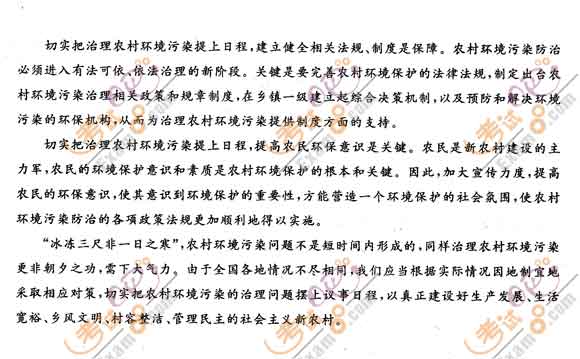 切实把治理农村环境污染提上日程,建立健全相关法规、制度是保障。农村环境污染防治
必须进入有法可依、依法治理的新阶段。关键是要完善农村环境保护的法律法规,制定出台农
村环境污染治理相关政策和规章制度,在乡镇一级建立起综合决策机制,以及预防和解决环境
污染的环保机构,从而为治理农村环境污染提供制度方面的支持。
切实把治理农村环境污染提上日程,提高农民环保意识是关键。农民是新农村建设的主
力军,农民的环境保护意识和素质是农村环境保护的根本和关键。因此,加大宣传力度,提高
农民的环保意识,使其意识到环境保护的重要性,方能营造一个环境保护的社会氛围,使农村
环境污染防治的各项政策法规更加顺利地得以实施。
“冰冻三尺非一日之寒”,农村环境污染问题不是短时间内形成的,同样治理农村环境污染
更非朝夕之功,需下大气力。由于全国各地情况不尽相同,我们应当根据实际情况因地制宜地
采取相应对策,切实把农村环境污染的治理问题摆上议事日程,以真正建设好生产发展、生活
宽裕、乡风文明、村容整洁、管理民主的社会主义新农村。